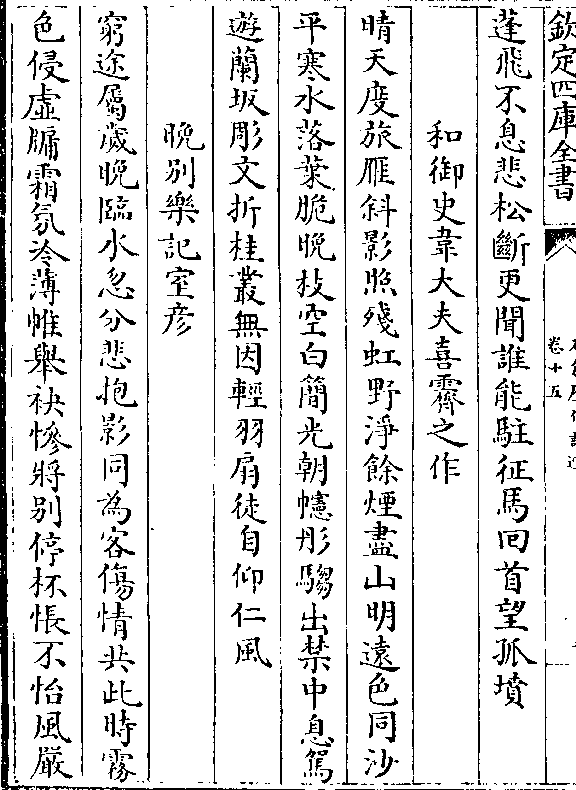 欽定四庫全書
卷十五
蓬飛不息悲松斷更聞誰能駐征馬回首望孤墳
和御史韋大夫喜霽之作
晴天度旅雁斜影照殘虹野淨餘煙盡山明遠色同沙
平寒水落葉脆晚枝空白簡光朝幰彤騶出禁中息駕
遊蘭坂彫文折桂叢無因輕羽扇徒自仰仁風
晚別樂記室彦
窮途屬歲晚臨水忽分悲抱影同為客傷情共此時霧
色侵虛牖霜氛冷薄帷舉袂慘將别停杯悵不怡風嚴